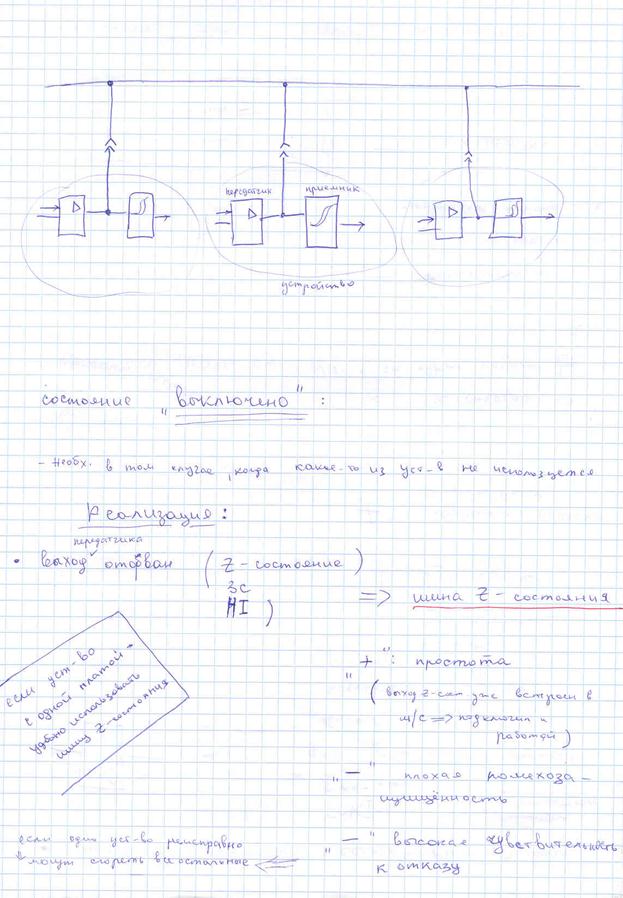 передатчик приемник
устройство
состояние „выключено" :
- необх. в том случае, когда какое-то из уст-в не используется
Реализация :
передатчика
• выход оторван ( Z - состояние )
3С
HI )
=> шина Z - состояния
если уст-во
с одной платой -
удобно использовать
шину Z - состояния
„ + ": простота
( выход Z-сост. уже встроен в
м/с => подключил и
работай )
„ — " плохая помехоза-
щищённость
„ — " высокая чувствительность
к отказу
если одно уст-во неисправно
могут сгореть все остальные <=